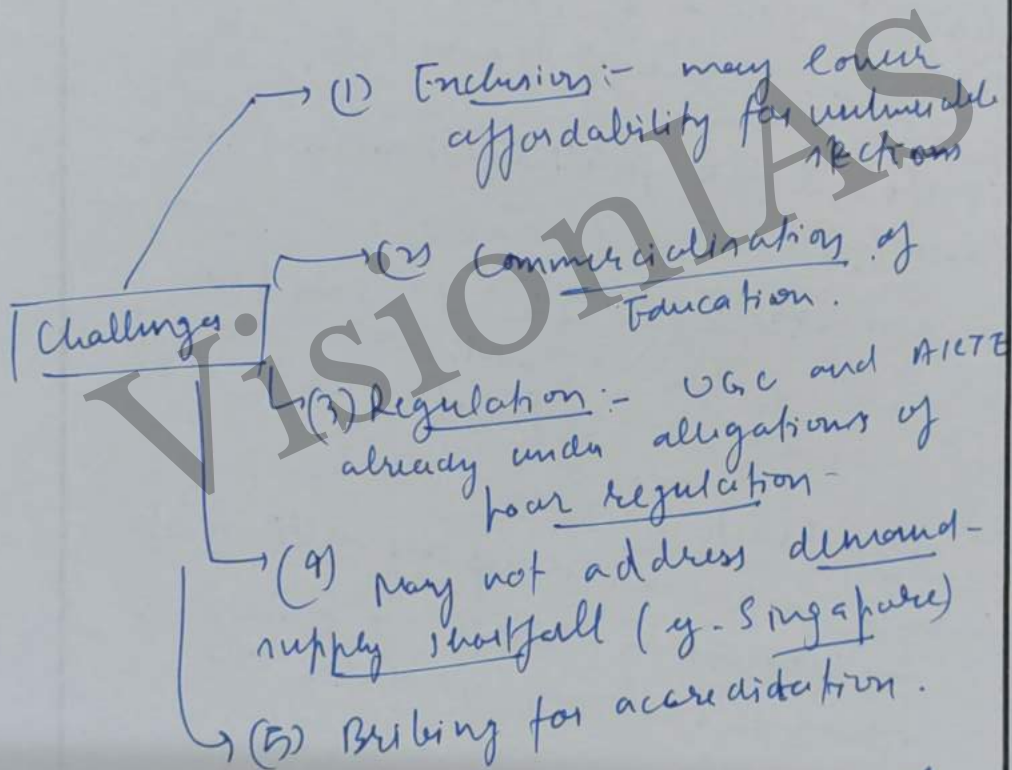 (1) Exclusion:- may lower
affordability for vulnerable
sections
(2) Commercialisation of
Education.
Challenges
(3) Regulation:- UGC and AICTE
already under allegations of
poor regulation-
(4) May not address demand-
supply shortfall (eg. Singapore)
(5) Bribing for accreditation.
VisionIAS